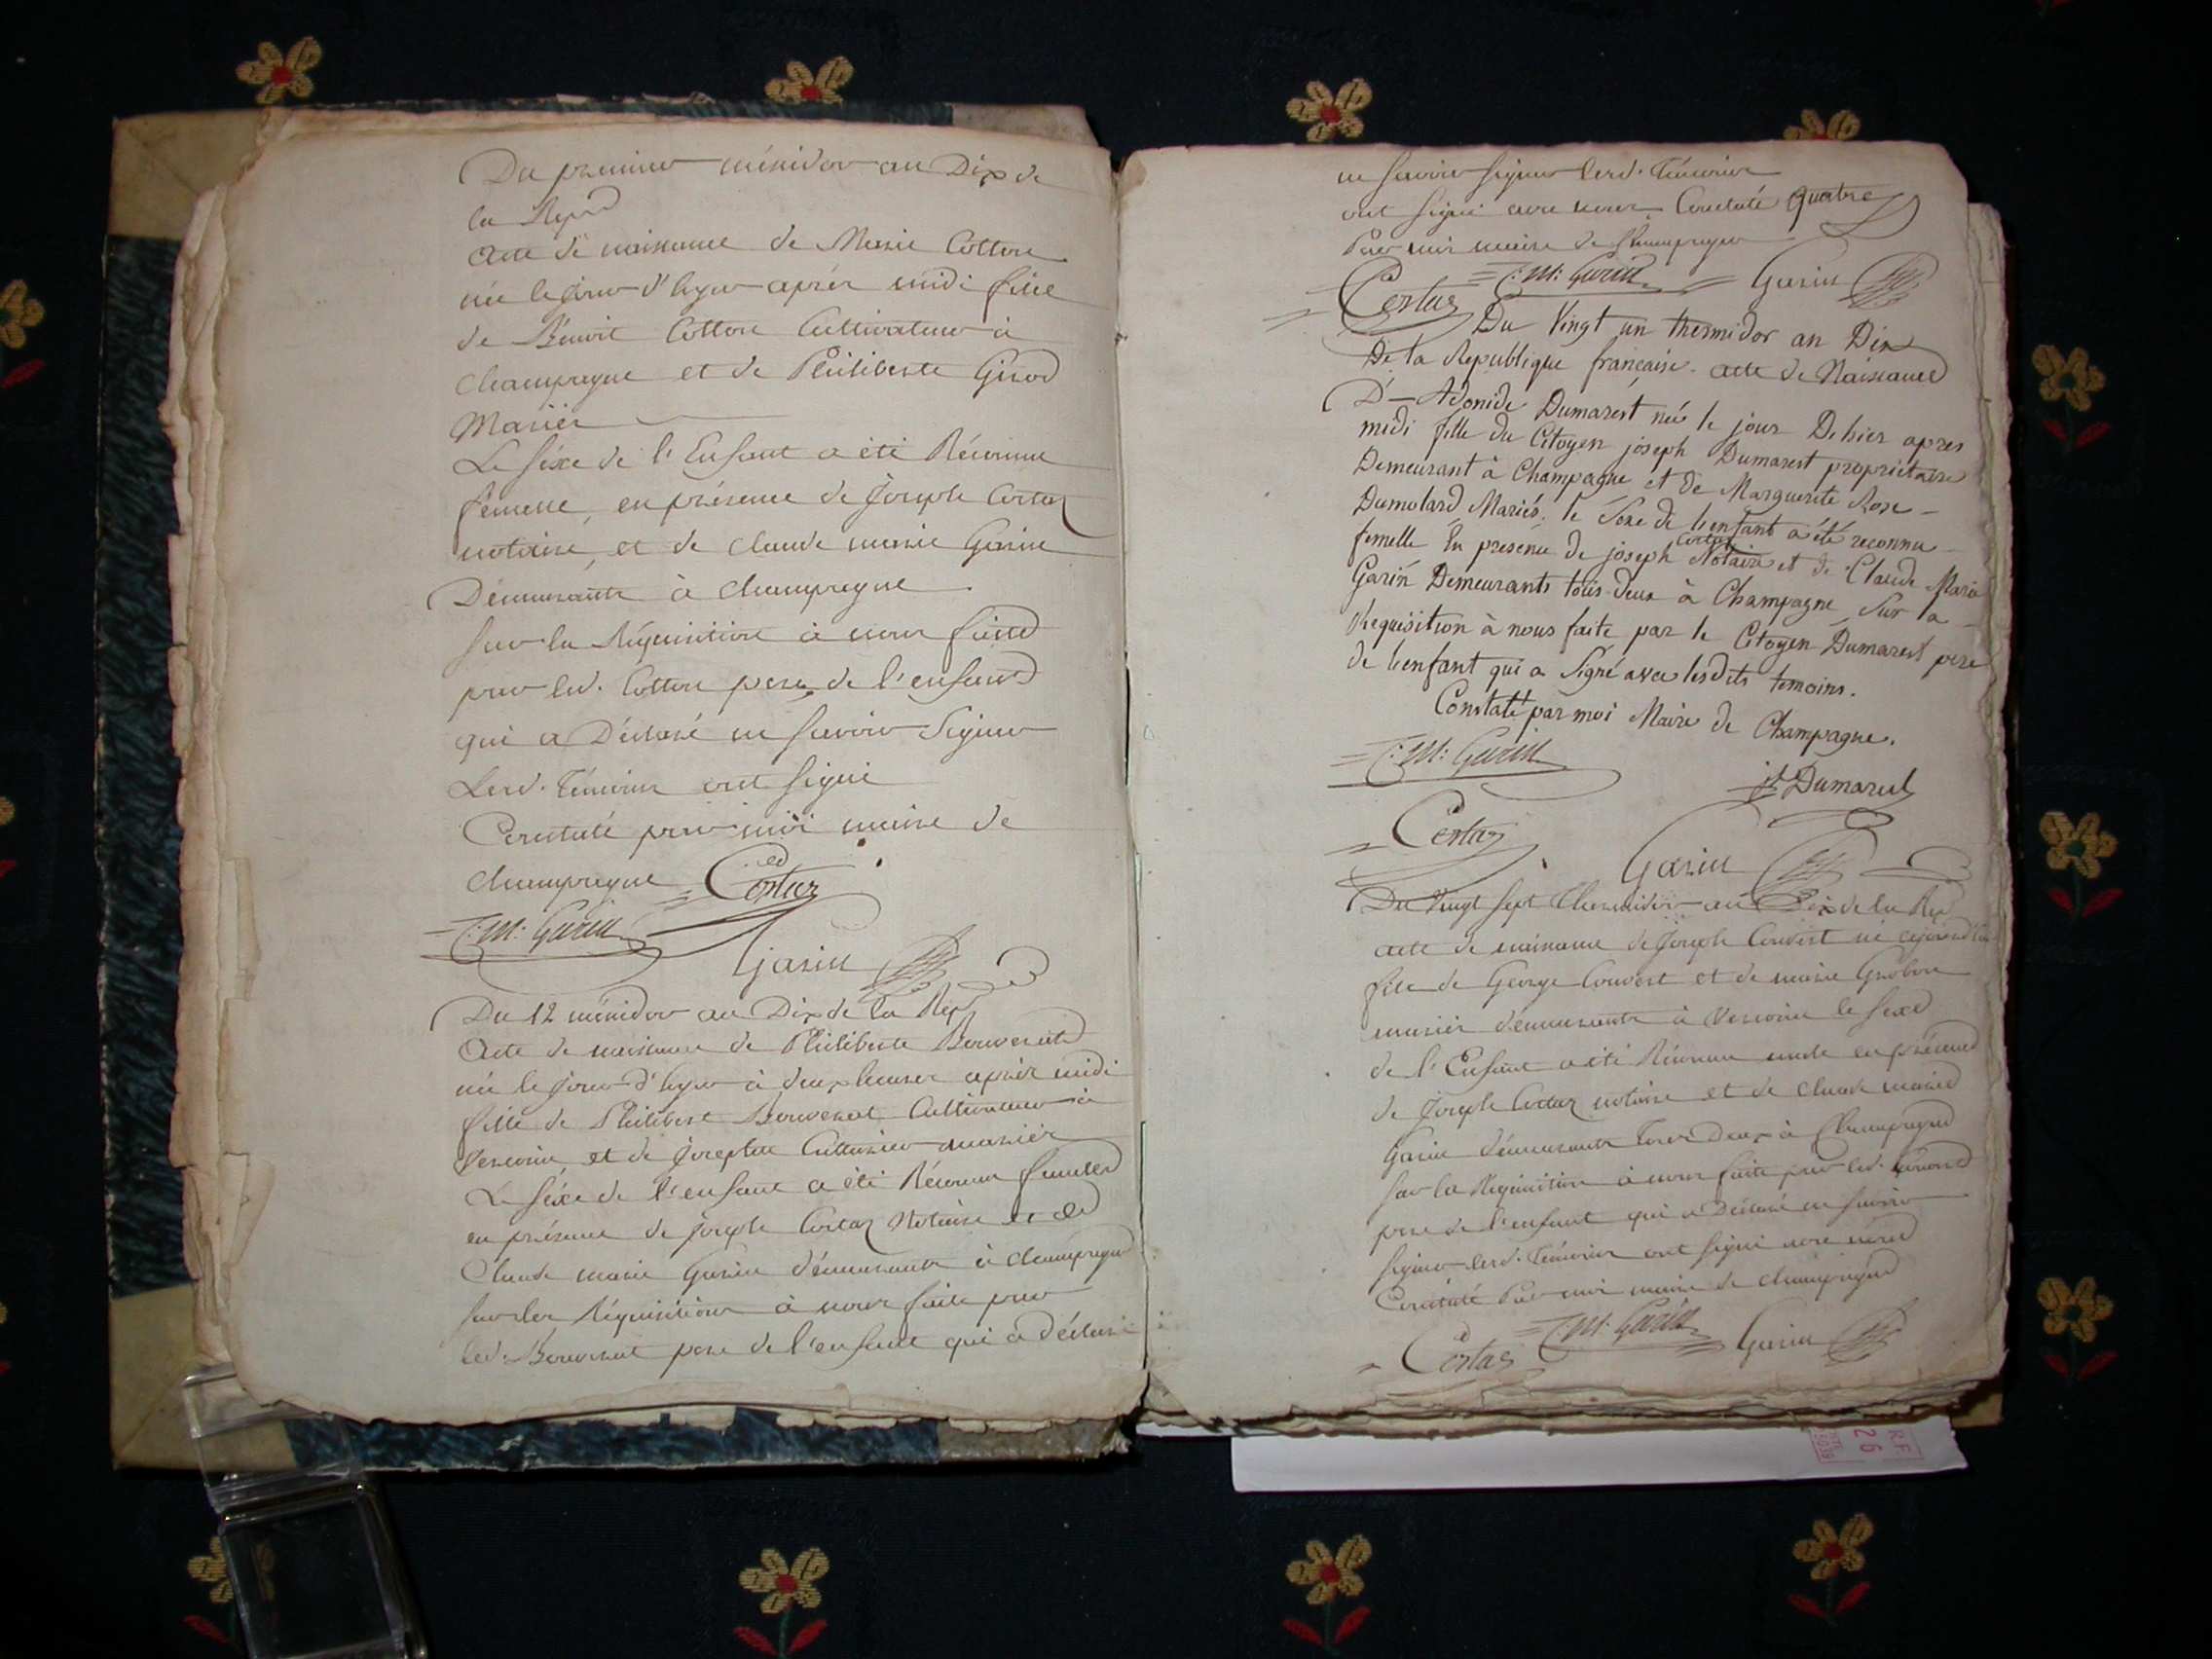 Du premier ménidor an Dix de
la Rep
Acte de naissance de Marie Cotton
née le jour d'hyer après midi fille
de Benoit Cotton Cultivateur à
Champagne et de Philiberte Girod
Mariés
Le séxe de l'Enfant a été Réconnu
femelle, en présence de Joseph Cortaz
notaire, et de Claude marie Garin
Démeurants à Champagne
sur la Réquisition à nous faite
par led. Cotton pere de l'enfant
qui a Déclaré ne savoir Signer
Lesd. Témoins ont signé
Constaté par moi maire de
Champagne Cortaz
C: M: Garin
Garin
Du 12 ménidor an Dix de la Rep
Acte de naissance de Philiberte Bouverat
née le jour d'hyer à deux heures après midi
fille de Philibert Bouverat Cultivateur à
et de Josephte mariés
Le séxe de l'enfant a été Réconnu femelle
en présence de joseph Cortaz Notaire et de
Claude marie Garin démeurants à Champagne
sur les Réquisitions à nous faite par
led. Bouverat pere de l'enfant qui a déclaré
ne savoir signer lesd. Témoins
ont signé avec nous Constaté Quatre
Par moi maire de Champagne
Cortaz C: M: Garin Garin
Du Vingt un thermidor an Dix
De la Republique française. acte de Naissance
D'— Adonide Dumarest née le jour De hier apres
midi fille du Citoyen joseph Dumarest propriétaire
Demeurant à Champagne et de Marguerite Rose
Dumolard Mariés. le Sexe de l'enfant a été reconnu
femelle En presence de joseph Cortaz Notaire et de Claude Marie
Garin Demeurants tous-deux à Champagne Sur la
Requisition à nous faite par le Citoyen Dumarest pere
de l'enfant qui a Signé avec lesdits temoins.
Constaté par moi Maire de Champagne.
C: M: Garin
jh Dumarest
Cortaz
Garin
Du Vingt sept Thermidor an Dix de la Rep
acte de naissance de Joseph Convert né
fils de George Convert et de marie Grobon
mariés démeurants à le séxe
de l'Enfant a été Réconnu male en présence
de Joseph Cortaz notaire et de Claude marie
Garin démeurants tous Deux à Champagne
sur la Réquisition à nous faite par led. Convert
pere de l'enfant qui a Déclaré ne savoir
signer lesd. Témoins ont signé avec nous
Constaté Par moi maire de Champagne
Cortaz C: M: Garin Garin
RF
26